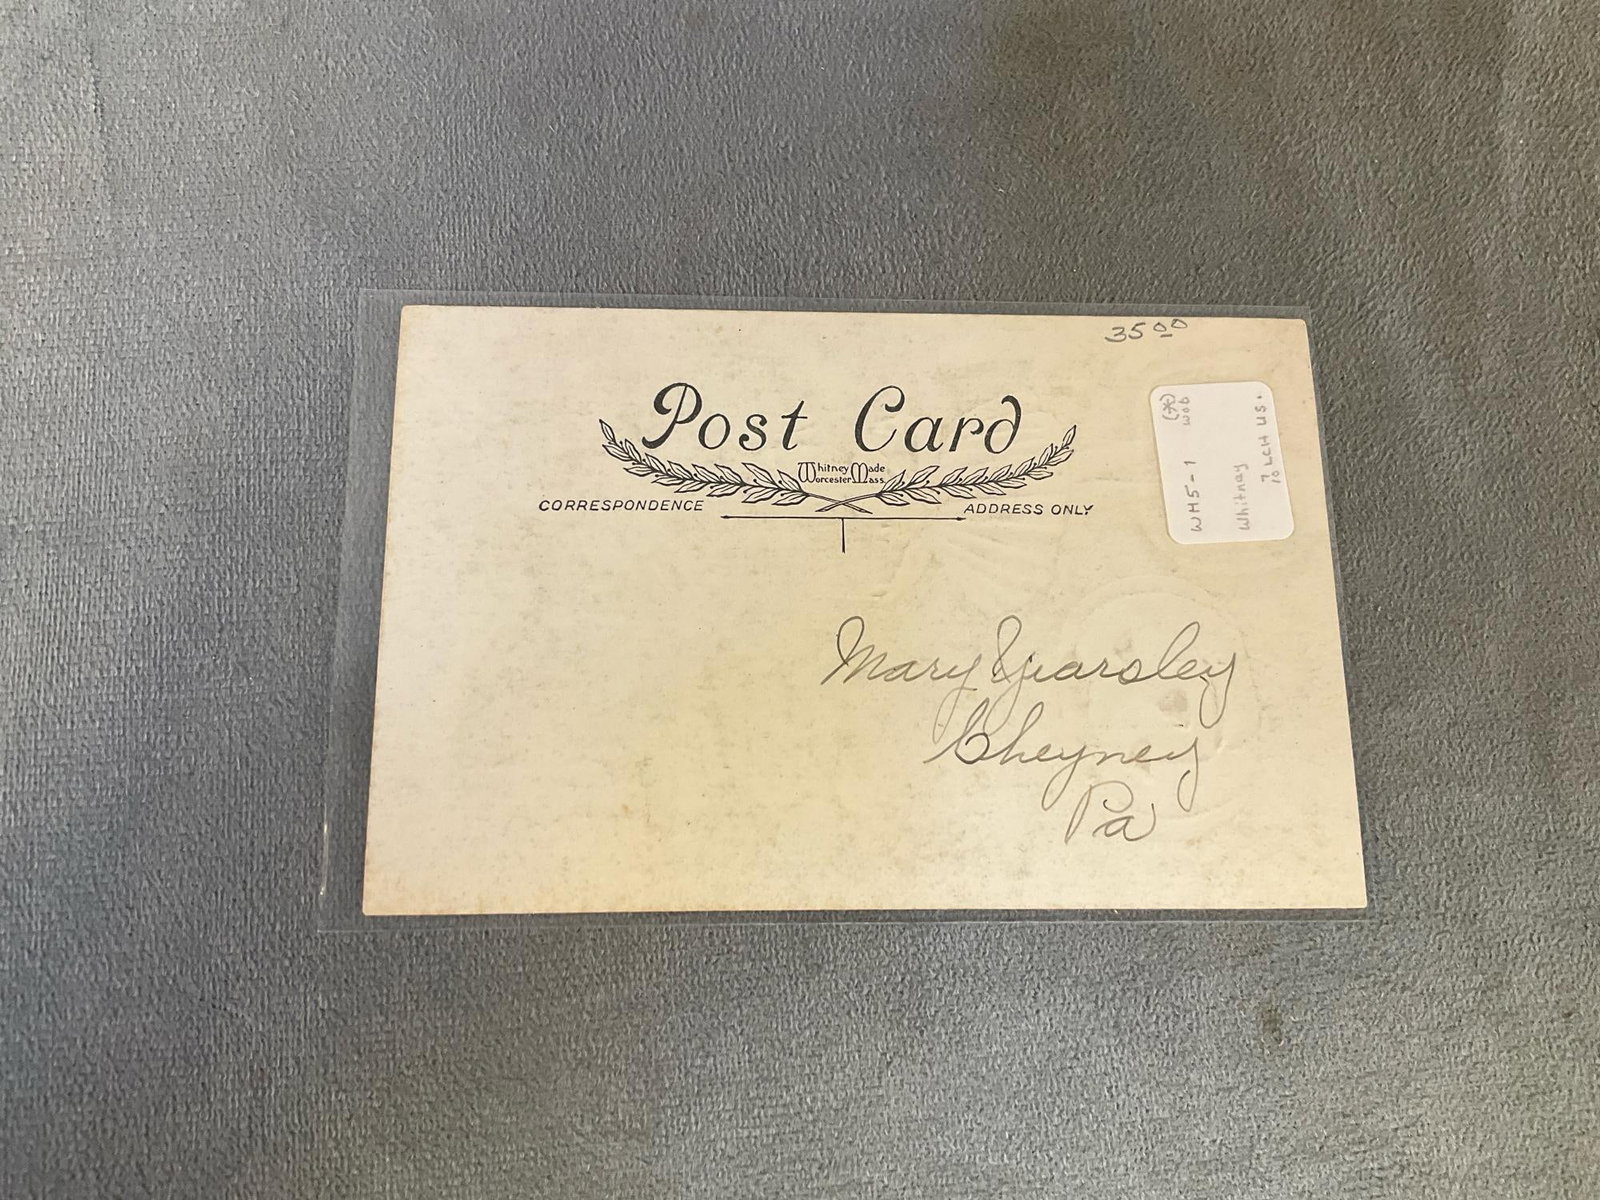 35 00
Post Card
Whitney Made
Worcester Mass.
CORRESPONDENCE
ADDRESS ONLY
WH5-1
(*)
WOD
Whitney
7
10 LCH US.
Mary Yearsley
Cheyney
Pa